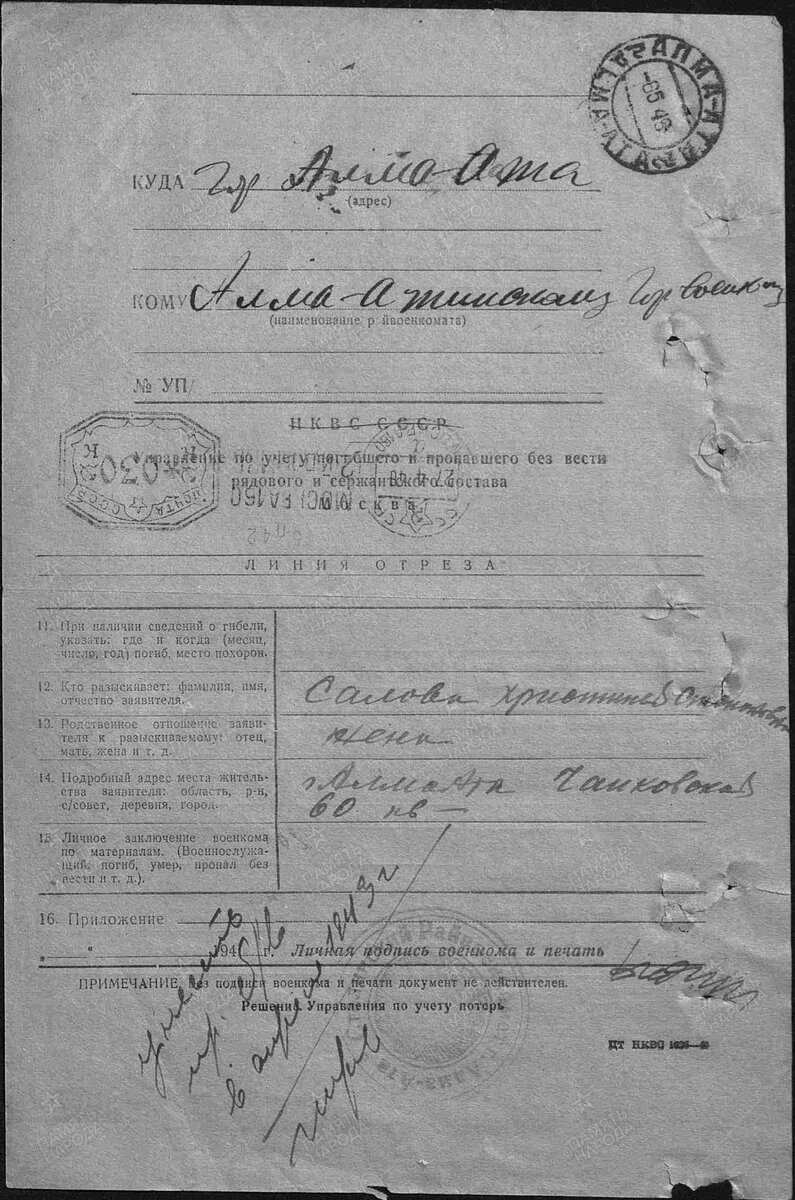 АЛМА-АТА
-6 5 46
КУДА Гор Алма-Ата
(адрес)
КОМУ Алма-Атинский Горвоенком
(наименование р йвоенкомата)
№ УП/
НКВС СССР
равление по учету погибшего и пропавшего без вести
рядового и сержантского состава
Москва
030
К
ПОЧТА
СССР
ЛИНИЯ ОТРЕЗА
11. При наличии сведений о гибели,
указать: где и когда (месяц,
число, год) погиб, место похорон.
12. Кто разыскивает: фамилия, имя,
отчество заявителя.
Салова
13. Родственное отношение заяви-
теля к разыскиваемому: отец,
мать, жена и т. д.
жена
14. Подробный адрес места житель-
ства заявителя: область, р-н,
с/совет, деревня, город.
г Алма Ата Чайковская
60 кв —
15. Личное заключение военкома
по материалам. (Военнослужа-
щий, погиб, умер, пропал без
вести и т. д.).
16. Приложение
„ “ 194 г. Личная подпись военкома и печать
ПРИМЕЧАНИЕ. Без подписи военкома и печати документ не действителен.
Решение Управления по учету потерь
в апреле 1943 г
ЦТ НКВС
ПАМЯТЬ НАРОДА